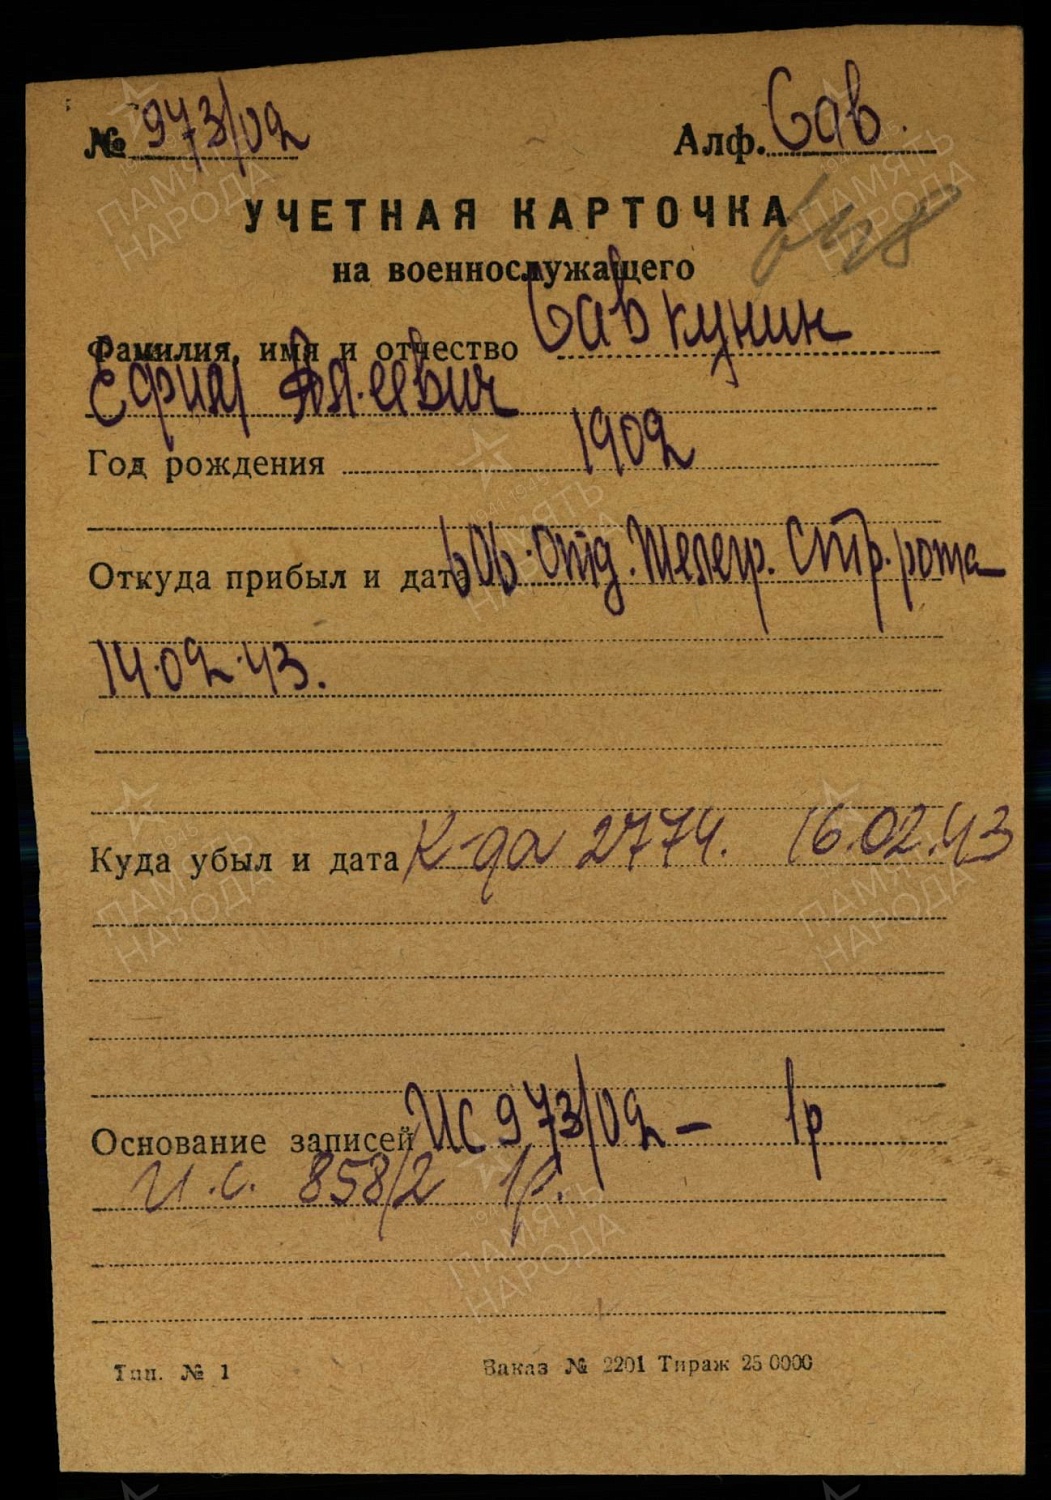 № 973/02 Алф. Сав.
УЧЕТНАЯ КАРТОЧКА
на военнослужащего
Фамилия, имя и отчество Савкунин
Ефим
Год рождения 1902
Откуда прибыл и дата 606 отд. Телегр. Стр. рота
14.02.43.
Куда убыл и дата К-да 2774. 16.02.43
Основание записей ИС 973/02 – 1р
И.С. 858/2 1р.
Тип. № 1 Заказ № 2201 Тираж 25 0000
ПАМЯТЬ
НАРОДА